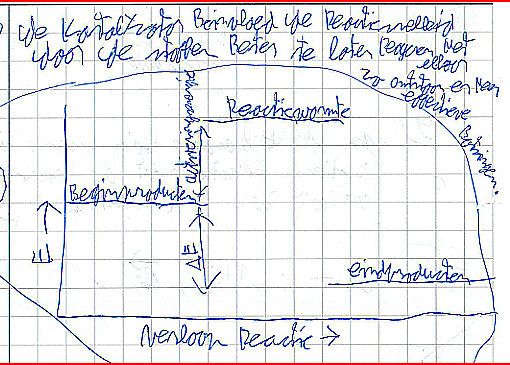 de Katalysator Beinvloed de Reactiesnelheid
door de stoffen Beter te laten Reageren met
elkaar
zo ontstaan en meer
effectieve
Botsingen.
Reactiewarmte
Beginproducten
E →
ΔE
eindproducten
Verloop Reactie →